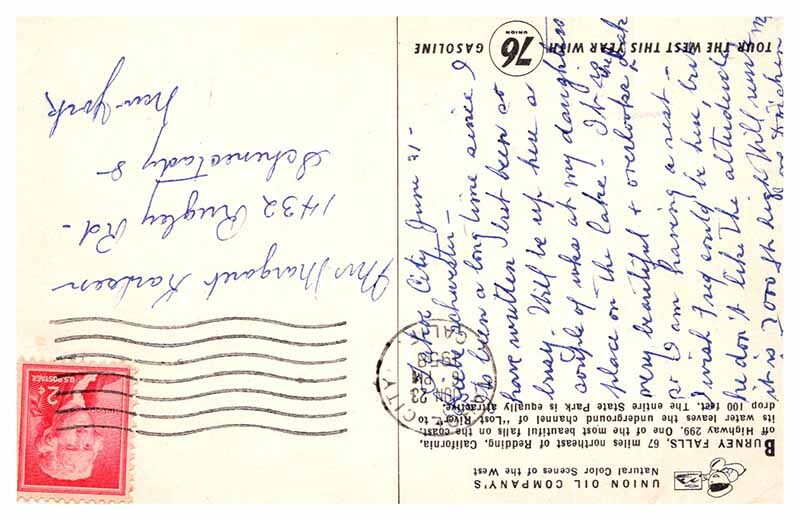 UNION OIL COMPANY'S
Natural Color Scenes of the West
BURNEY FALLS, 67 miles northeast of Redding, California,
off Highway 299. One of the most beautiful falls on the coast,
its water leaves the underground channel of "Lost River" to
drop 100 feet. The entire State Park is equally attractive.
City June 21-
Dear
Its been a long time since I
have written but been so
busy. Will be up here a
couple of wks at my daughters
place on the lake. It is
very beautiful & overlooks
I am having a rest-
I wish Fred could be here but
he don't like the altitude
it is 7000 ft high Will
TOUR THE WEST THIS YEAR WITH
UNION
76
GASOLINE
CITY
JUN 23
PM
1958
CAL
U.S. POSTAGE
2¢
Mrs Margaret
1432 Rugby Rd-
Schenectady 8-
New York